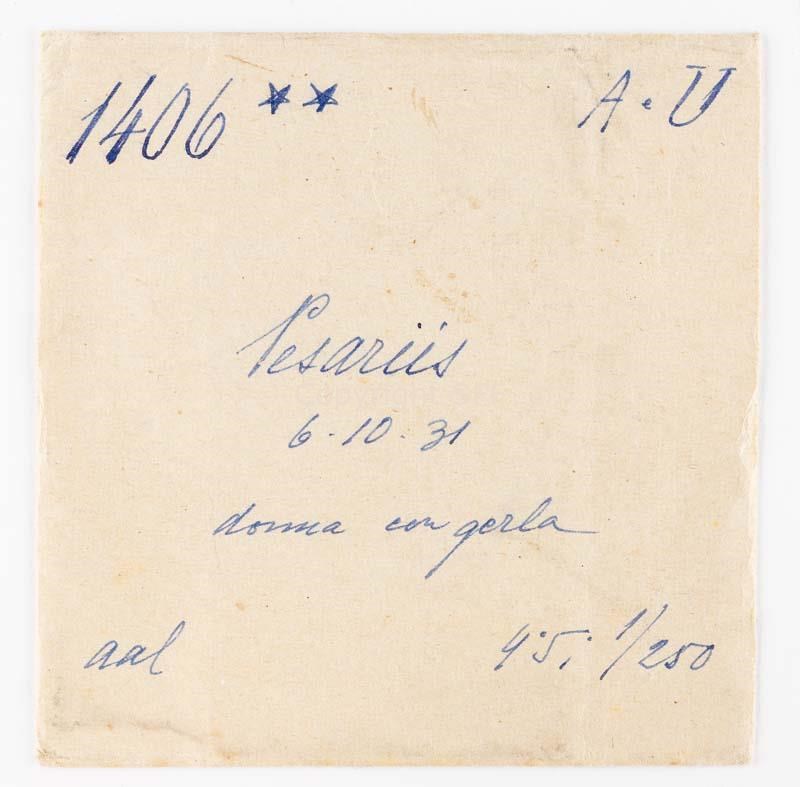 1406 ** A. U
Pesariis
6-10-31
donna con gerla
aal 4'5; 1/250